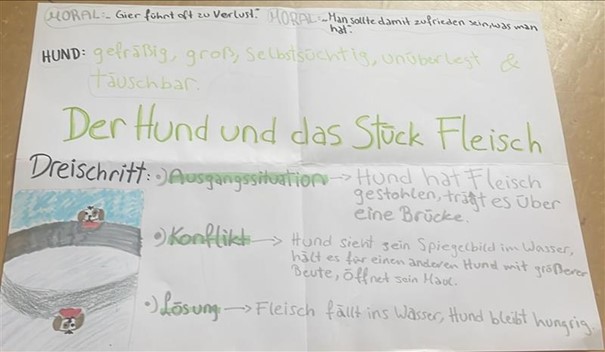 MORAL:- "Gier führt oft zu Verlust." MORAL:- "Man sollte damit zufrieden sein, was man
hat".
HUND: gefräßig, groß, selbstsüchtig, unüberlegt &
täuschbar.
Der Hund und das Stück Fleisch
Dreischritt: •) Ausgangssituation → Hund hat Fleisch
gestohlen, trägt es über
eine Brücke.
•) Konflikt → Hund sieht sein Spiegelbild im Wasser,
hält es für einen anderen Hund mit größerer
Beute, öffnet sein Maul.
•) Lösung → Fleisch fällt ins Wasser, Hund bleibt hungrig.